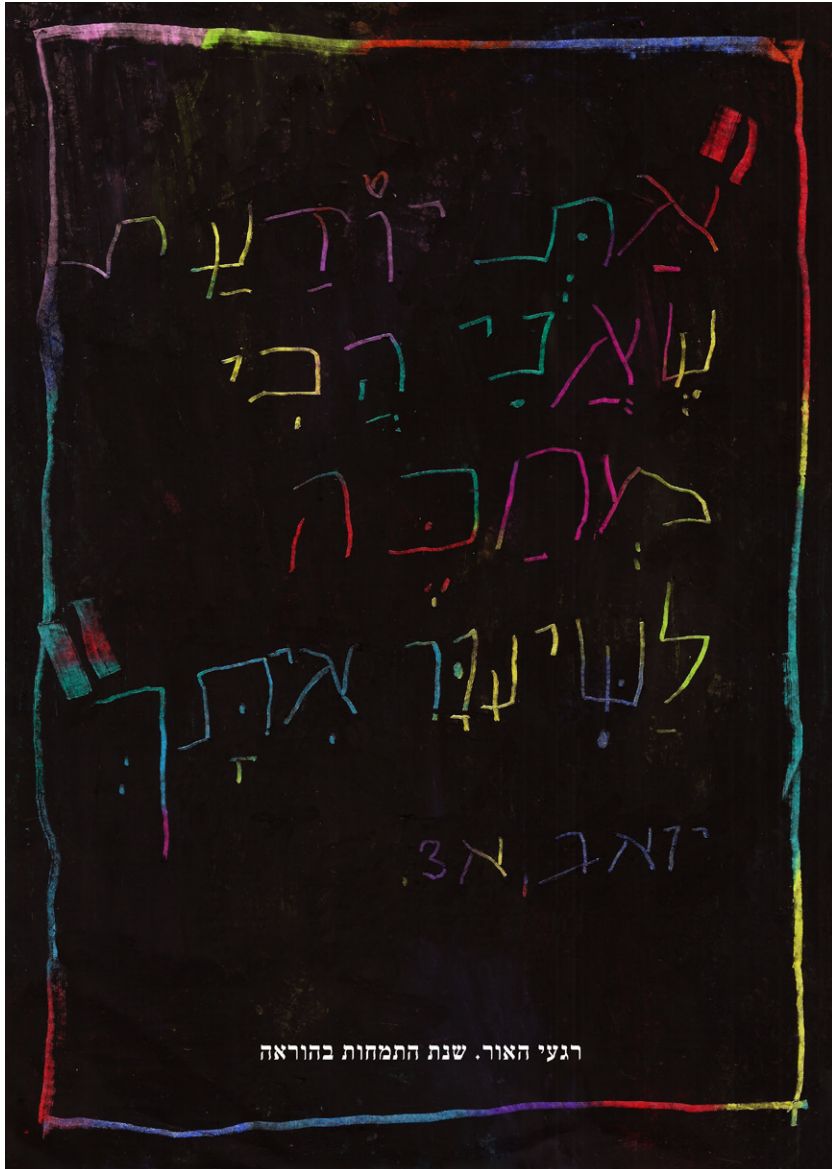 "אַתְּ יוֹדַעַת
שֶׁאֲנִי הֲכִי
מְחַכֶּה
לַשִּׁיעוּר אִיתָּךְ"
יואב, א3.
רגעי האור. שנת התמחות בהוראה